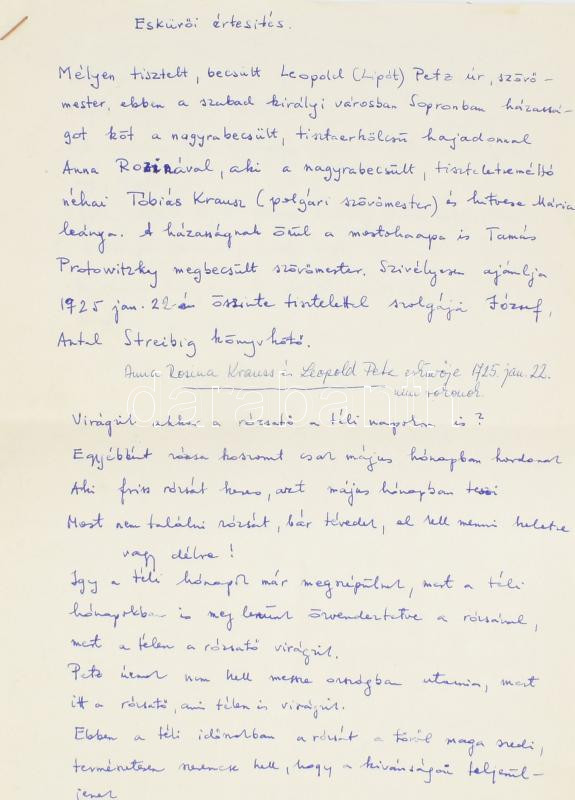 Esküvői értesítés.
Mélyen tisztelt, becsült Leopold (Lipót) Petz úr, szövő-
mester, ebben a szabad királyi városban Sopronban házassá-
got köt a nagyrabecsült, tisztaerkölcsű hajadonnal
Anna Rozinával, aki a nagyrabecsült, tiszteletreméltó
néhai Tóbiás Krausz (polgári szövőmester) és hitvese Mária
leánya. A házasságnak örül a mostohaapa is Tamás
Protowitzky megbecsült szövőmester. Szivélyesen ajánlja
1725 jan. 22-én őszinte tisztelettel szolgája József,
Antal Streibig könyvkötő.
Anna Rosina Krausz és Leopold Petz esküvője 1725. jan. 22.
nim soronor.
databank
Virágzik a rózsató a téli napokon is?
Egyébként rózsa koszorut csak május hónapban hordanak
Aki friss rózsát keres, azt május hónapban teszi
Most nem találni rózsát, bár tévedek, el kell menni keletre
vagy délre!
Igy a téli hónapok már megszépülnek, mert a téli
hónapokban is meg lettünk örvendeztetve a rózsával,
mert a télen a rózsató virágzik.
Petz úrnak nem kell messze országban utaznia, mert
itt a rózsató, ami télen is virágzik.
Ebben a téli időszakban a rózsát a tőről maga szedi,
természetesen szerencse kell, hogy a kivánságai teljesül-
jenek